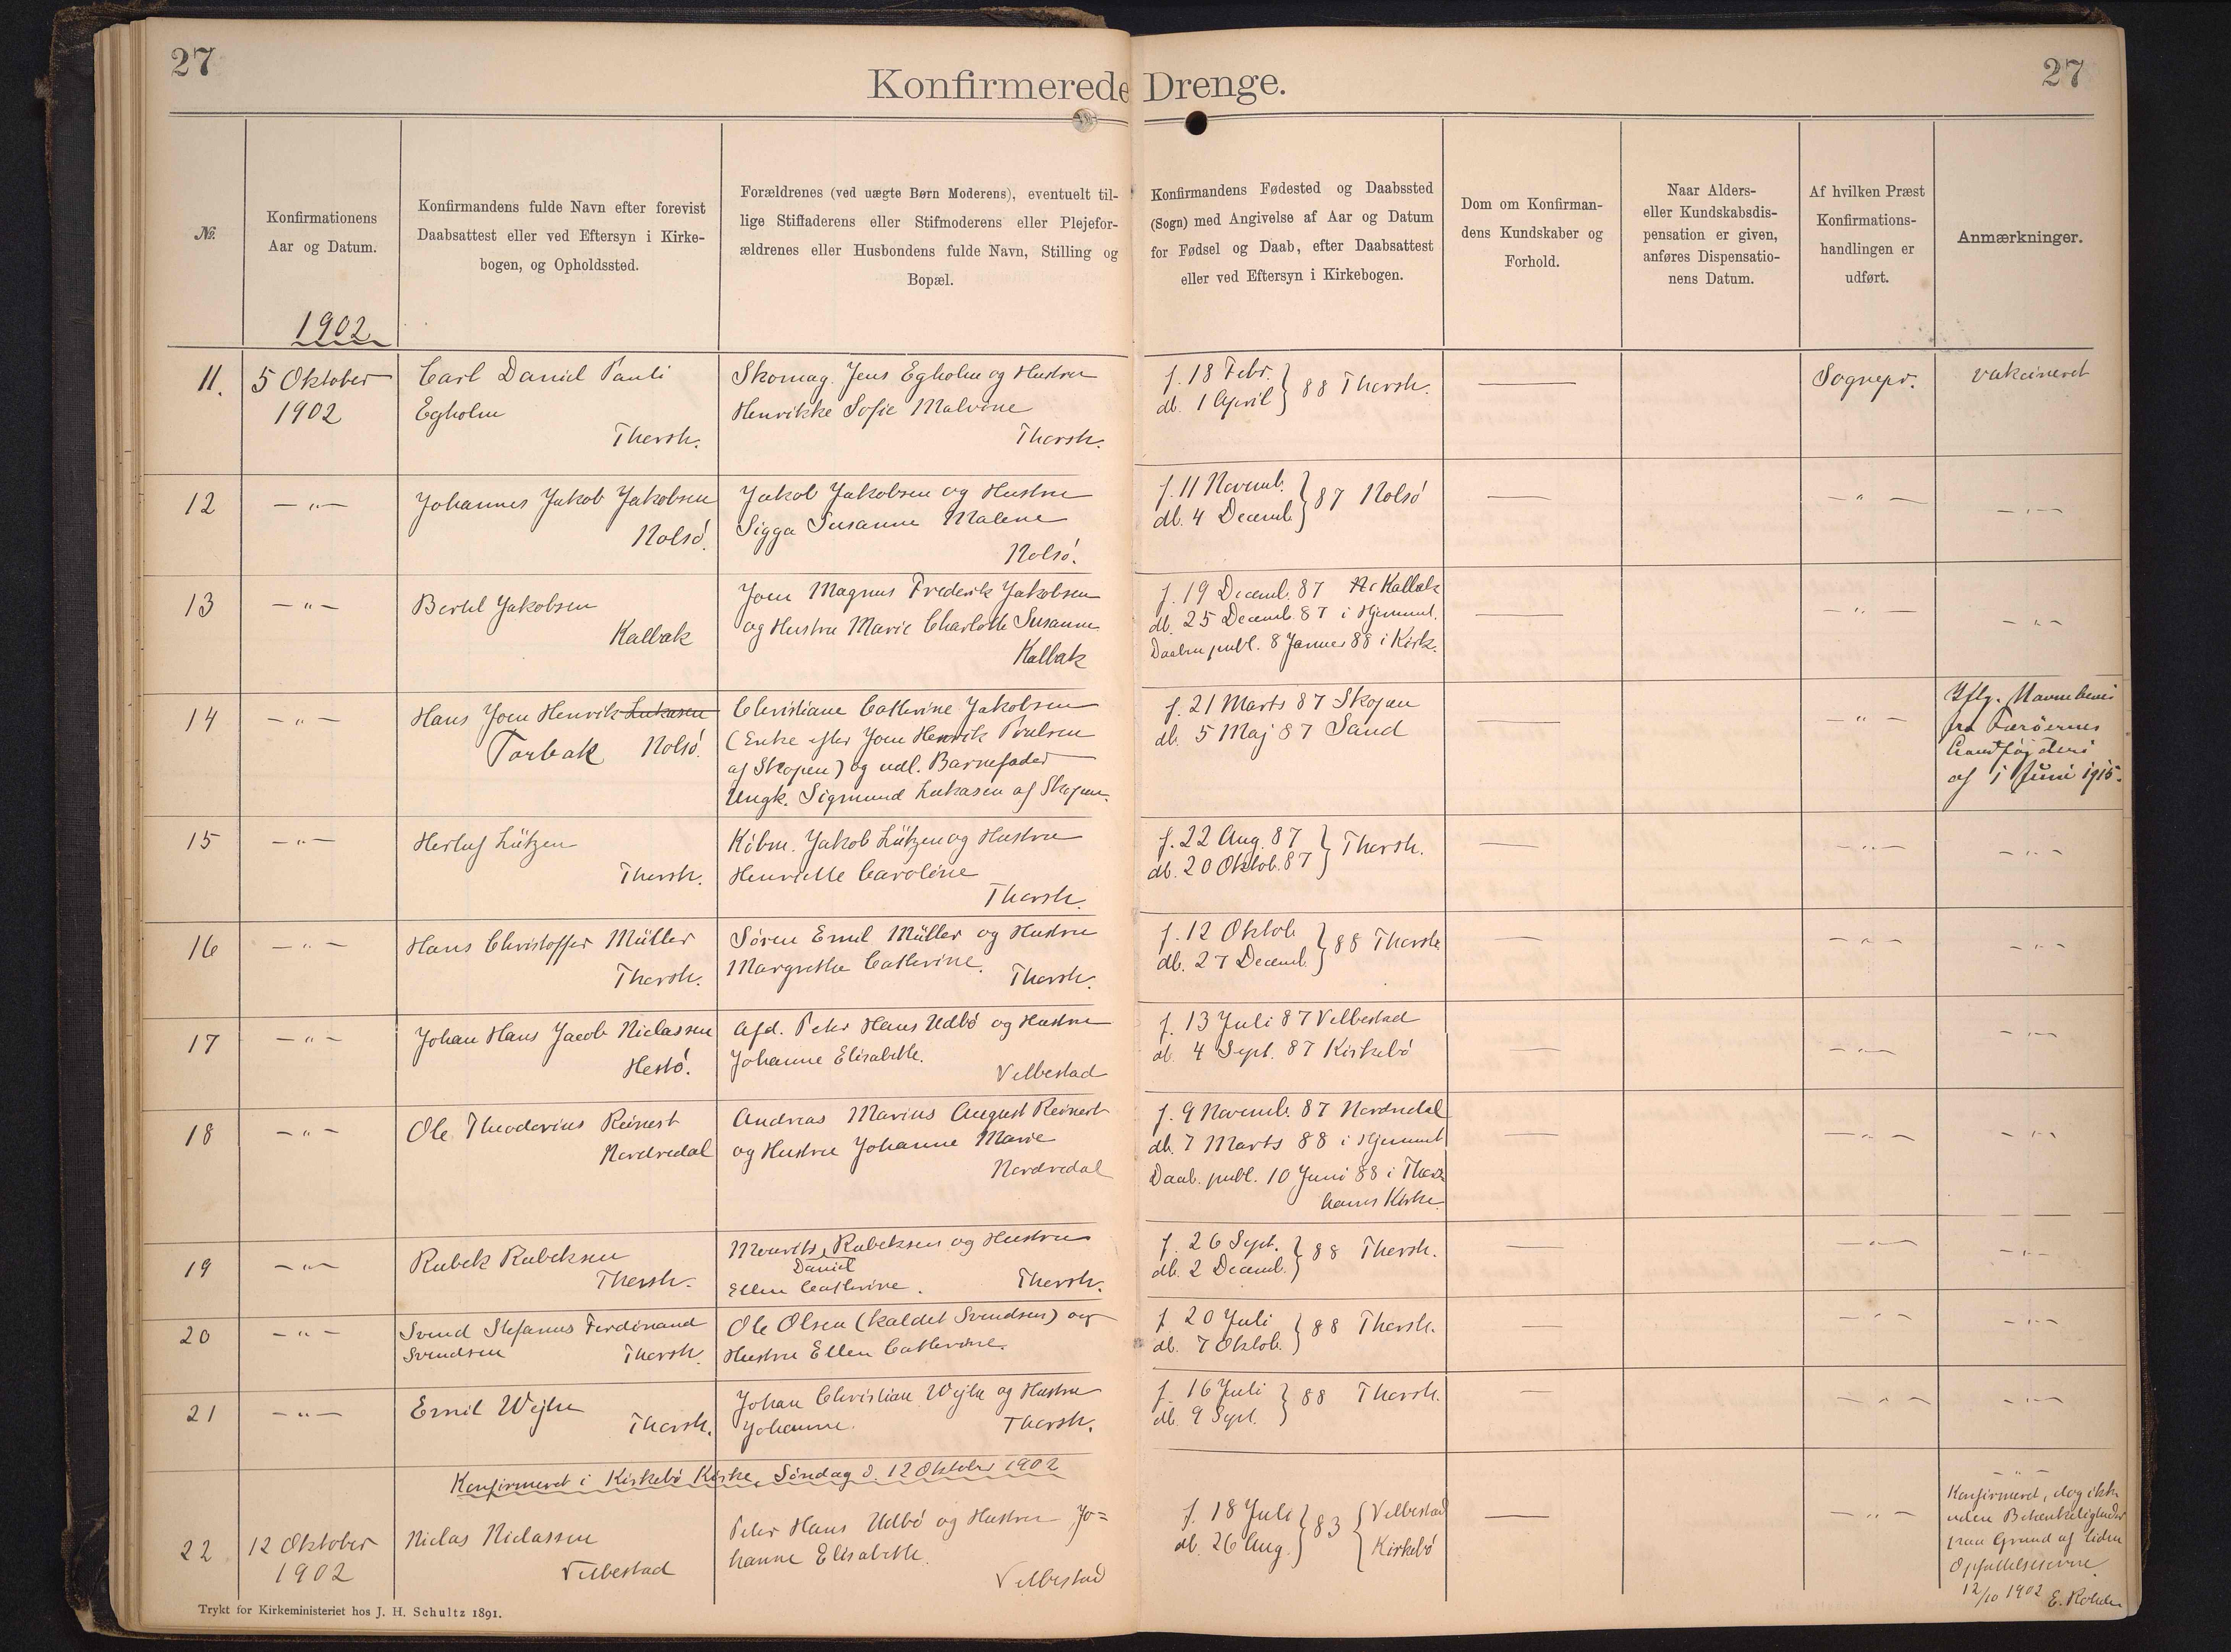 27
27
Konfirmerede Drenge.
№.
Konfirmationens
Aar og Datum.
Konfirmandens fulde Navn efter forevist
Daabsattest eller ved Eftersyn i Kirke-
bogen, og Opholdssted.
Forældrenes (ved uægte Børn Moderens), eventuelt til-
lige Stiffaderens eller Stifmoderens eller Plejefor-
ældrenes eller Husbondens fulde Navn, Stilling og
Bopæl.
Konfirmandens Fødested og Daabssted
(Sogn) med Angivelse af Aar og Datum
for Fødsel og Daab, efter Daabsattest
eller ved Eftersyn i Kirkebogen.
Dom om Konfirman-
dens Kundskaber og
Forhold.
Naar Alders-
eller Kundskabsdis-
pensation er given,
anføres Dispensatio-
nens Datum.
Af hvilken Præst
Konfirmations-
handlingen er
udført.
Anmærkninger.
1902
11.
5 Oktober
1902
Carl Daniel Pauli
Egholm
Thorsh.
Skomag. Jens Egholm og Hustru
Henrikke Sofie Malvine
Thorsh.
f. 18 Febr.
db. 1 April } 88 Thorsh.
—
Sognepr.
vakcineret
12
— " —
Johannes Jakob Jakobsen
Nolsö.
Jakob Jakobsen og Hustru
Sigga Susanne Malene
Nolsö.
f. 11 Novemb.
db. 4 Decemb. } 87 Nolsö
—
— " —
— " —
13
— " —
Bertel Jakobsen
Kalbak
Joen Magnus Frederik Jakobsen
og Hustru Marie Charlotte Susanne
Kalbak
f. 19 Decemb. 87 Kalbak
db. 25 Decemb. 87 i Hjemmet.
Daaben publ. 8 Januar 88 i Kirk.
—
— " —
— " —
14
— " —
Hans Joen Henrik Lukasen
Torbak Nolsö.
Christiane Cathrine Jakobsen
(Enke efter Joen Henrik Poulsen
af Skopen) og udl. Barnefader
Ungk. Sigmund Lukasen af Skopen.
f. 21 Marts 87 Skopen
db. 5 Maj 87 Sand
—
— " —
Iflg. Navnebevis
fra Færöernes
Landfogderi
af 1 Juni 1915.
15
— " —
Herluf Lützen
Thorsh.
Köbm. Jakob Lützen og Hustru
Henriette Caroline
Thorsh.
f. 22 Aug. 87
db. 20 Oktob. 87 } Thorsh.
—
— " —
— " —
16
— " —
Hans Christoffer Müller
Thorsh.
Sören Emil Müller og Hustru
Margrethe Cathrine.
Thorsh.
f. 12 Oktob.
db. 27 Decemb. } 88 Thorsh.
—
— " —
— " —
17
— " —
Johan Hans Jacob Niclassen
Hestö.
Afd. Peter Hans Udbö og Hustru
Johanne Elisabeth.
Velbestad
f. 13 Juli 87 Velbestad
db. 4 Sept. 87 Kirkebö
—
— " —
— " —
18
— " —
Ole Theodorius Reinert
Nordredal
Andreas Marius August Reinert
og Hustru Johanne Marie
Nordredal
f. 9 Novemb. 87 Nordredal
db. 7 Marts 88 i Hjemmet
Daab. publ. 10 Juni 88 i Thors
havns Kirke
—
— " —
— " —
19
— " —
Rubek Rubeksen
Thorsh.
Mourits Rubeksen og Hustru
Daniel
Ellen Cathrine. Thorsh.
f. 26 Sept.
db. 2 Decemb. } 88 Thorsh.
—
— " —
— " —
20
— " —
Svend Stefanus Ferdinand
Svendsen Thorsh.
Ole Olsen (kaldet Svendsen) og
Hustru Ellen Cathrine.
f. 20 Juli
db. 7 Oktob. } 88 Thorsh.
—
— " —
— " —
21
— " —
Emil Wejhe
Thorsh.
Johan Christian Wejhe og Hustru
Johanne. Thorsh.
f. 16 Juli
db. 9 Sept. } 88 Thorsh.
—
— " —
— " —
Konfirmeret i Kirkebö Kirke, Söndag d. 12 Oktober 1902
22
12 Oktober
1902
Niclas Niclassen
Velbestad
Peter Hans Udbö og Hustru Jo=
hanne Elisabeth.
Velbestad
f. 18 Juli
db. 26 Aug. } 83 { Velbestad
Kirkebö
—
— " —
— " —
Konfirmeret, dog ikke
uden Betænkeligheder
paa Grund af liden
Opfattelsesevne.
12/10 1902 E. Rohde
Trykt for Kirkeministeriet hos J. H. Schultz 1891.